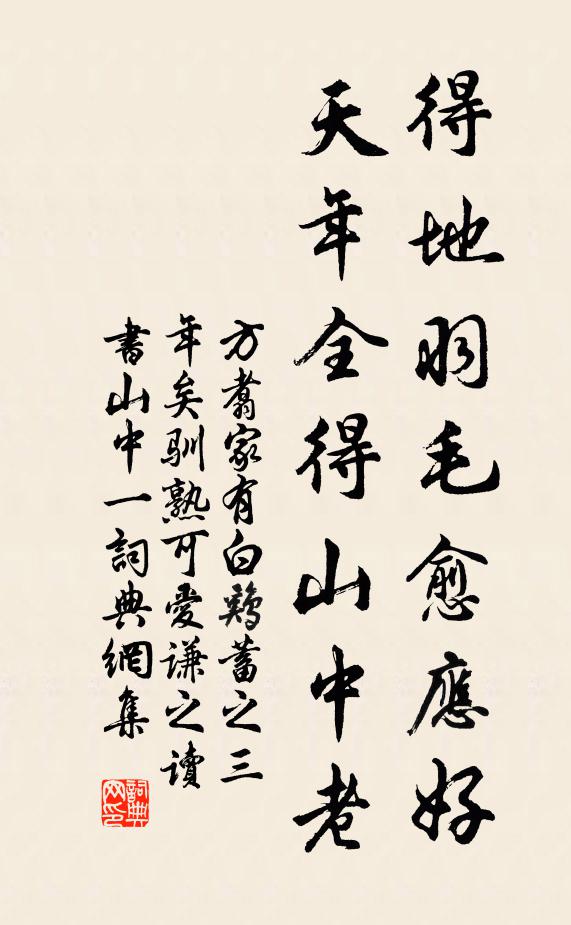 得地羽毛愈應好
天年全得山中老
方翥家有白鷄蓄之三
年矣馴熟可愛謙之讀
書山中一詞典網集
詞典
网印